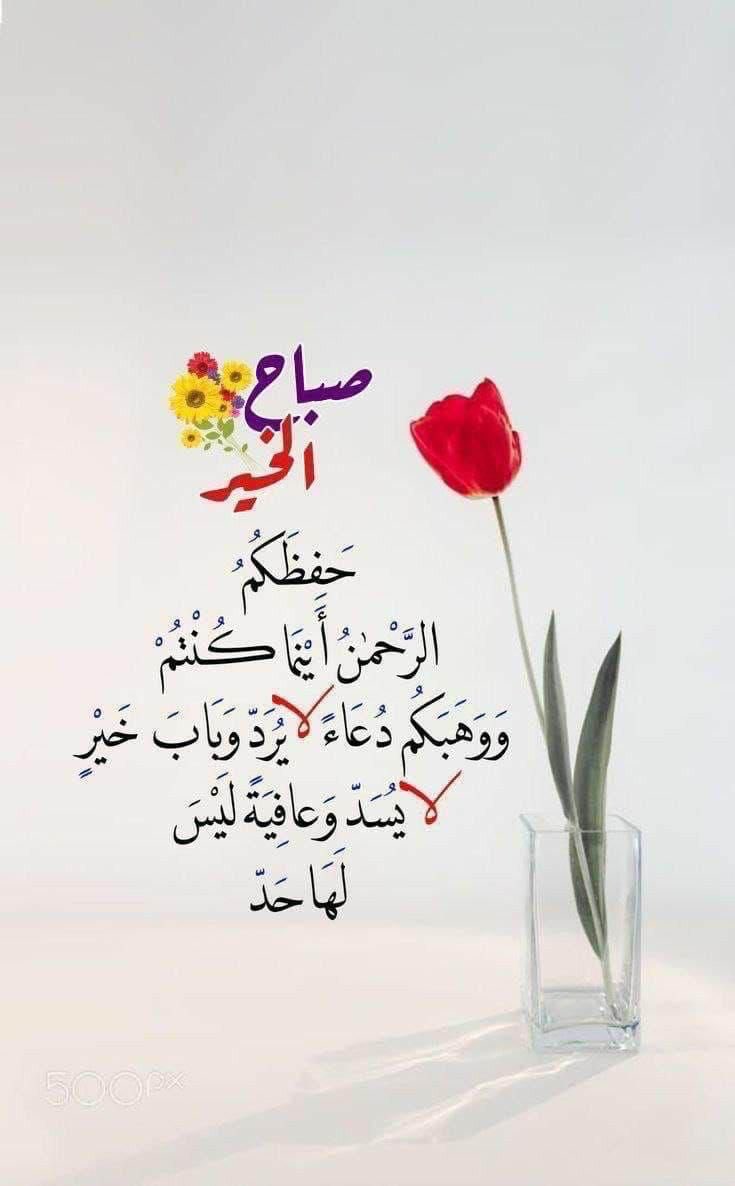 صباح
الخير
حَفِظَكُمُ
الرَّحْمٰنُ أَيْنَمَا كُنْتُمْ
وَوَهَبَكُم دُعَاءً لا يُرَدّ وَبَابَ خَيْرٍ
لا يُسَدّ وَعافِيَةً لَيْسَ
لَهَا حَدّ
500px